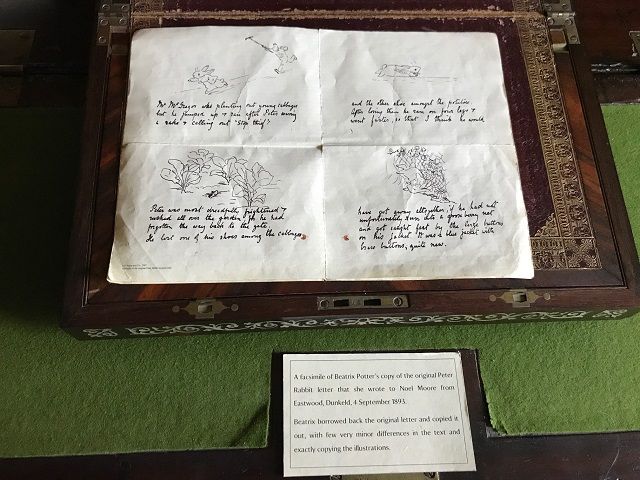 Mr McGregor was planting out young cabbages
but he jumped up & ran after Peter waving
a rake & calling out "Stop thief"!
and the other shoe amongst the potatoes.
After losing them he ran on four legs &
went faster, so that I think he would
Peter was most dreadfully frightened &
rushed all over the garden, for he had
forgotten the way back to the gate.
He lost one of his shoes among the cabbages
have got away altogether, if he had not
unfortunately run into a gooseberry net
and got caught fast by the large buttons
on his jacket. It was a blue jacket with
brass buttons, quite new.
A facsimile of Beatrix Potter's copy of the original Peter
Rabbit letter that she wrote to Noel Moore from
Eastwood, Dunkeld, 4 September 1893.
Beatrix borrowed back the original letter and copied it
out, with few very minor differences in the text and
exactly copying the illustrations.